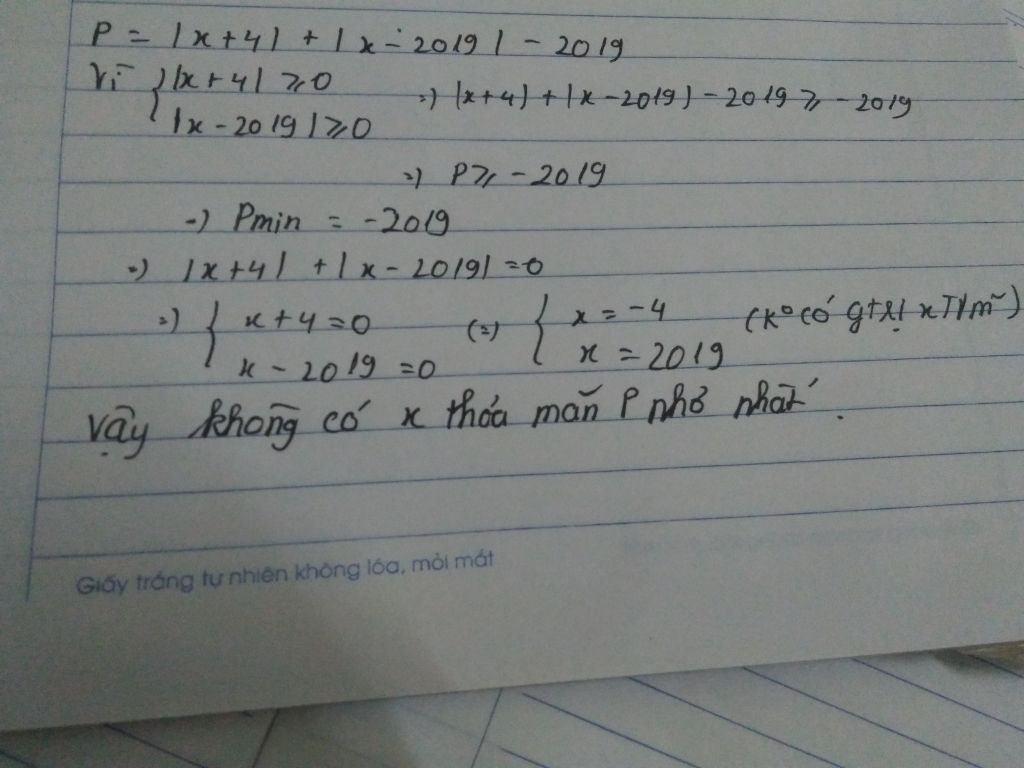 P = |x+4| + |x-2019| - 2019
Vì { |x+4| ⩾ 0
|x-2019| ⩾ 0
=) |x+4| + |x-2019| - 2019 ⩾ -2019
=) P ⩾ -2019
=) Pmin = -2019
=) |x+4| + |x-2019| = 0
=) { x+4=0
x-2019=0
(=) { x = -4
x = 2019
(Kº có gtrị x T/mãn)
Vậy không có x thỏa mãn P nhỏ nhất.
Giấy trắng tự nhiên không lóa, mỏi mắt